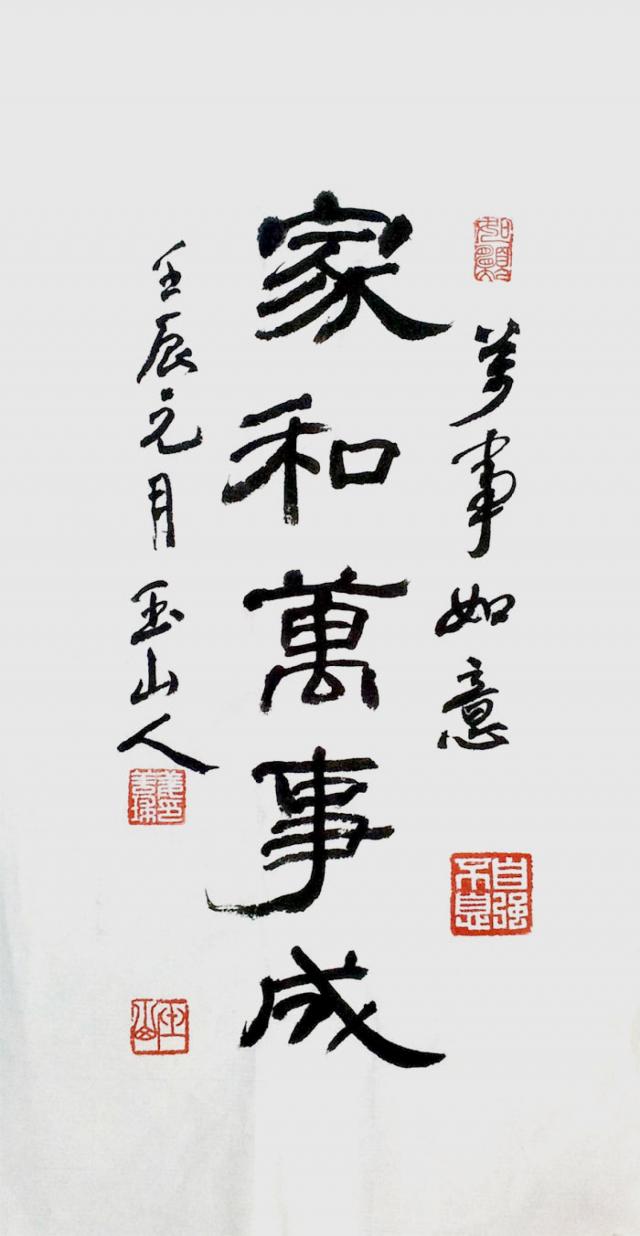 萬事如意
自强不息
家和萬事成
壬辰元月玉山人